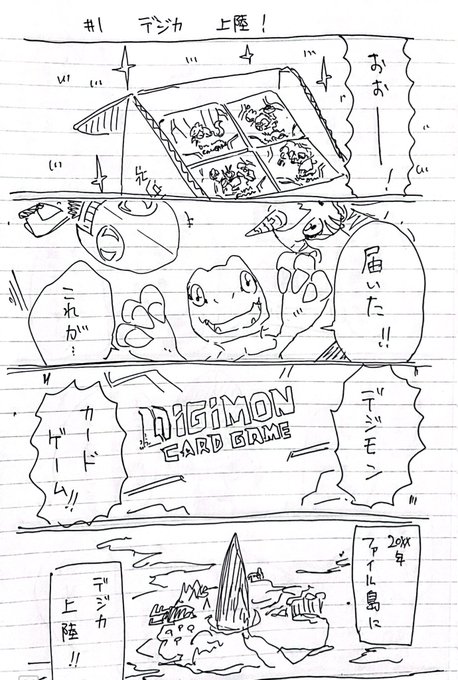 #1 デジカ 上陸!
おおー!
届いた!!
これが…
デジモン
カード
ゲーム!!
DIGIMON
CARD GAME
20XX年
ファイル島に
デジカ
上陸!!